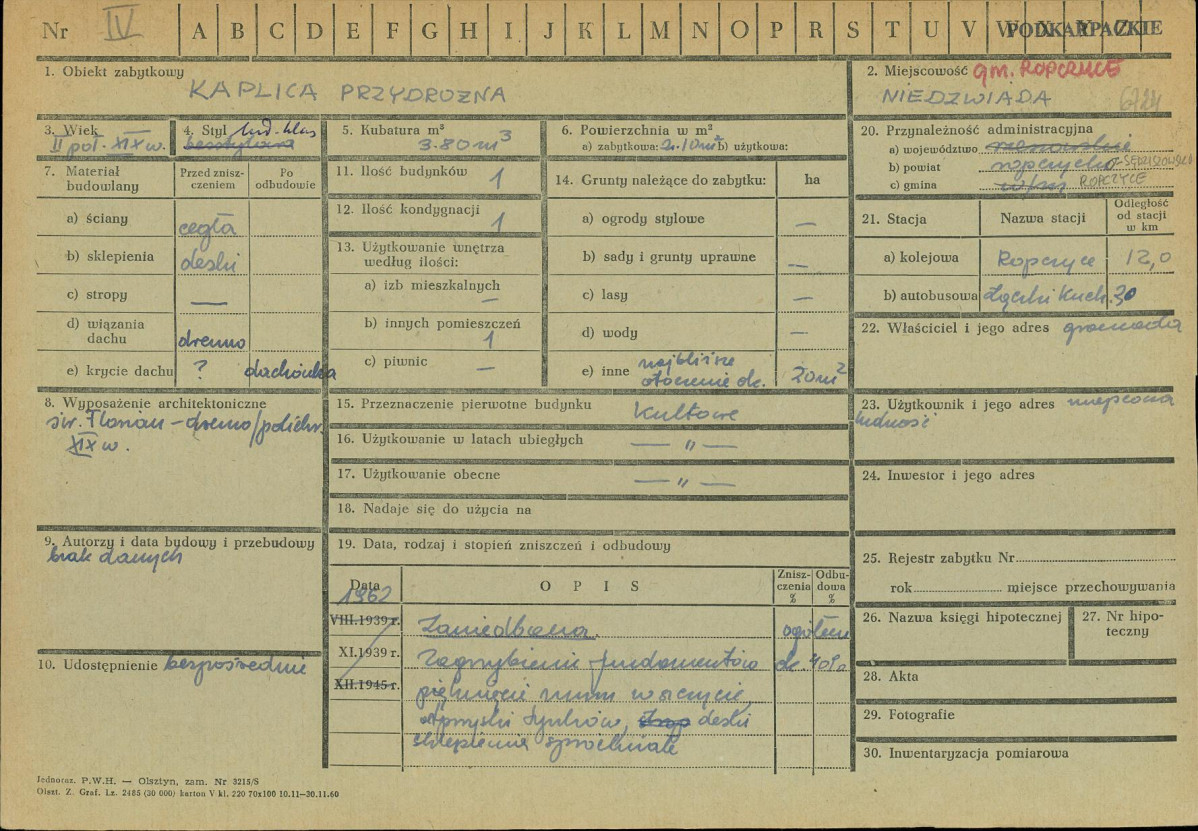 Nr IV A B C D E F G H I J K L M N O P R S T U V W X Y Z PODKARPACKIE
1. Obiekt zabytkowy
KAPLICA PRZYDROŻNA
2. Miejscowość gm. ROPCZYCE
NIEDZWIADA
3. Wiek
II poł. XIX w.
4. Styl lud. klas
5. Kubatura m³
3.80 m³
6. Powierzchnia w m²
a) zabytkowa: 2.10m² b) użytkowa:
20. Przynależność administracyjna
a) województwo rzeszowskie
b) powiat ropczycko-SĘDZISZOWSKI
c) gmina ROPCZYCE
7. Materiał budowlany
Przed znisz-czeniem
Po odbudowie
a) ściany cegła
b) sklepienia deski
c) stropy —
d) wiązania dachu drewno
e) krycie dachu ? dachówka
11. Ilość budynków 1
12. Ilość kondygnacji 1
13. Użytkowanie wnętrza
według ilości:
a) izb mieszkalnych —
b) innych pomieszczeń 1
c) piwnic —
14. Grunty należące do zabytku: ha
a) ogrody stylowe —
b) sady i grunty uprawne —
c) lasy —
d) wody —
e) inne najbliższe
otoczenie ok. 20m²
21. Stacja Nazwa stacji Odległość od stacji w km
a) kolejowa Ropczyce 12,0
b) autobusowa Łączki Kuch. 30
22. Właściciel i jego adres gromada
8. Wyposażenie architektoniczne
św. Florian – drewno/polichr.
XIX w.
15. Przeznaczenie pierwotne budynku kultowe
16. Użytkowanie w latach ubiegłych — „ —
17. Użytkowanie obecne — „ —
18. Nadaje się do użycia na
23. Użytkownik i jego adres miejscowa
ludność
24. Inwestor i jego adres
9. Autorzy i data budowy i przebudowy
brak danych
10. Udostępnienie bezpośrednie
19. Data, rodzaj i stopień zniszczeń i odbudowy
Data OPIS Znisz-czenia % Odbu-dowa %
1962
VIII.1939 r. Zaniedbana. ogółem
XI.1939 r. Zagrzybienie fundamentów ok. 40%
XII.1945 r. pęknięcie muru w szczycie,
odpryski tynków, deski
sklepienia spróchniałe
25. Rejestr zabytku Nr
rok miejsce przechowywania
26. Nazwa księgi hipotecznej
27. Nr hipo-teczny
28. Akta
29. Fotografie
30. Inwentaryzacja pomiarowa
Jednoraz. P.W.H. — Olsztyn, zam. Nr 3215/S
Olszt. Z. Graf. Lz. 2485 (30 000) karton V kl. 220 70x100 10.11—30.11.60